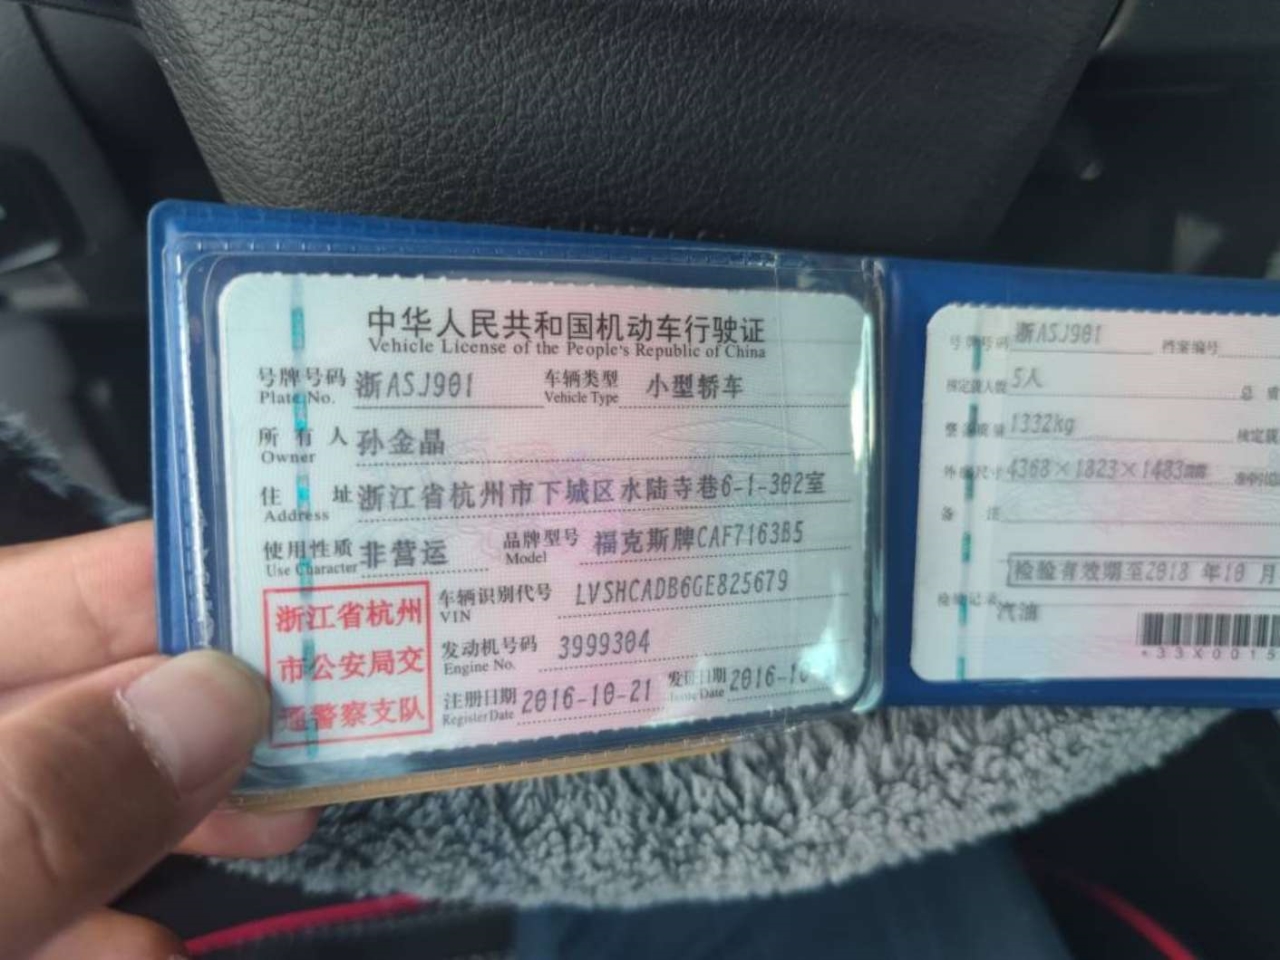 中华人民共和国机动车行驶证
Vehicle License of the People's Republic of China
号牌号码 浙ASJ901 车辆类型 小型轿车
Plate No. Vehicle Type
所有人 孙金晶
Owner
住址 浙江省杭州市下城区水陆寺巷6-1-302室
Address
使用性质 非营运 品牌型号 福克斯牌CAF7163B5
Use Character Model
浙江省杭州
市公安局交
通警察支队
车辆识别代号 LVSHCADB6GE825679
VIN
发动机号码 3999304
Engine No.
注册日期 2016-10-21 发证日期 2016-10
Register Date Issue Date
号牌号码 浙ASJ901 档案编号
核定载人数 5人 总
整备质量 1332kg 核定载
外廓尺寸 4368×1823×1483mm
备注
检验有效期至2018 年10 月
检验记录 汽油